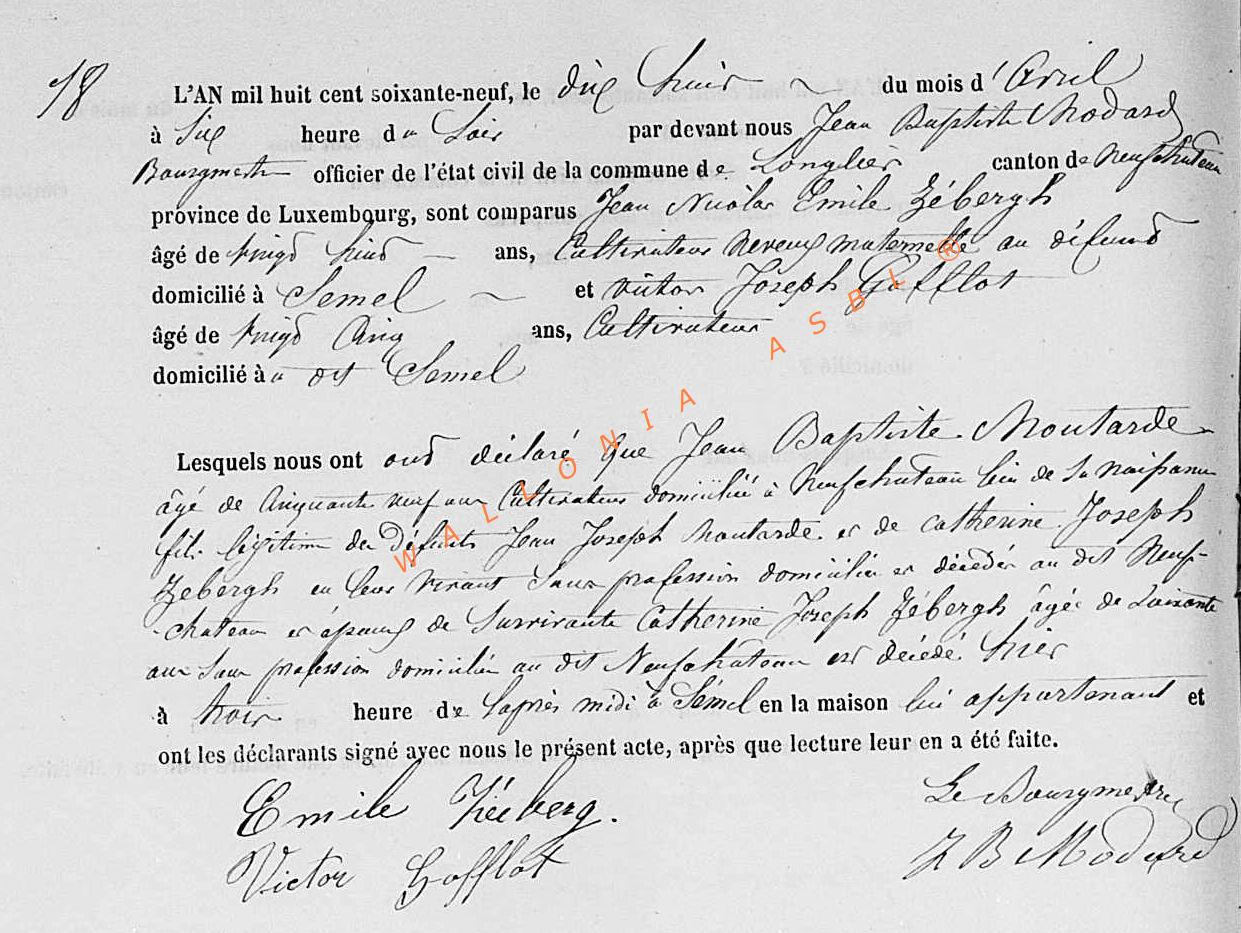 18
L'AN mil huit cent soixante-neuf, le dix huit du mois d'Avril
à Six heure du Soir par devant nous Jean Baptiste Modard
Bourgmestre officier de l'état civil de la commune de Longlier canton de Neufchateau
province de Luxembourg, sont comparus Jean Nicolas Emile Zébergh
âgé de vingt huit ans, Cultivateur Neveux maternelle au défunt
domicilié à Semel et victor Joseph Gofflot
âgé de vingt Cinq ans, Cultivateur
domicilié à u dit Semel
Lesquels nous ont ont déclaré que Jean Baptiste Moutarde
âgé de Cinquante neuf ans Cultivateur domicilié à Neufchateau lieu de Sa naissance
fils légitime de Défunts Jean Joseph Moutarde et de Catherine Joseph
Zebergh en leur vivant Sans profession domicilié et décédés au dit Neuf-
-chateau et époux de Survivante Catherine Joseph Zébergh âgée de Soixante
ans Sans profession domiciliée au dit Neufchateau est décédé hier
à trois heure de L'après midi à Sémel en la maison lui appartenant et
ont les déclarants signé avec nous le présent acte, après que lecture leur en a été faite.
Emile Zéeberg.
Le Bourgmestre
Victor Gofflot
J B Modard
WALLONIA ASBL ®